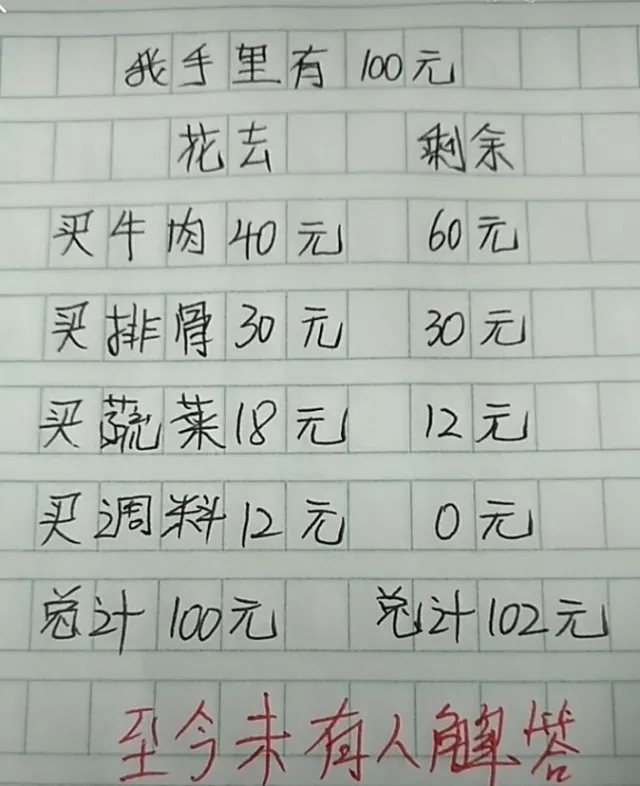 我手里有100元
花去 剩余
买牛肉40元 60元
买排骨30元 30元
买蔬菜18元 12元
买调料12元 0元
总计100元 总计102元
至今未有人解答